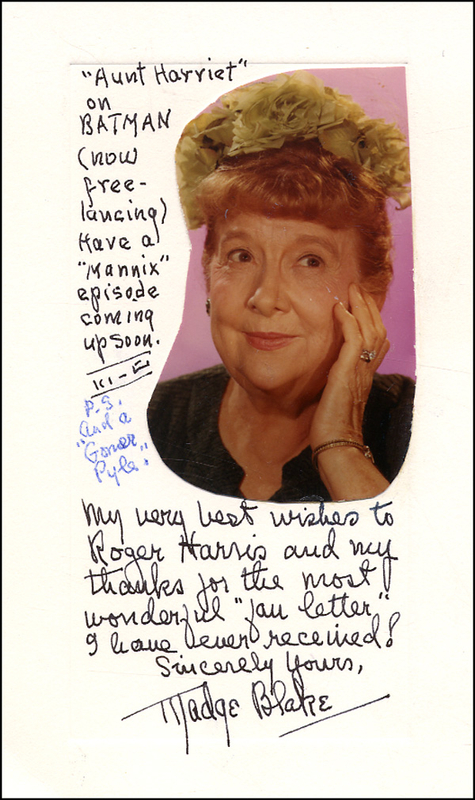 "Aunt Harriet"
on
BATMAN
(now
free-
lancing)
Have a
"Mannix"
episode
coming
up soon.
P.S.
And a
"Gomer
Pyle."
My very best wishes to
Roger Harris and my
thanks for the most
wonderful "fan letter"
I have ever received!
Sincerely Yours,
Madge Blake